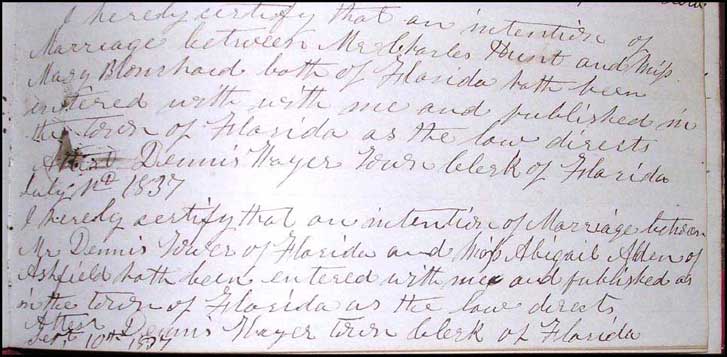 I hereby certify that an intention of
Marriage between Mr Charles Hunt and Miss
Mary Blanchard both of Florida hath been
entered with with me and published in
the town of Florida as the law directs
Attest Dennis Thayer Town Clerk of Florida
July 1837
I hereby certify that an intention of Marriage between
Mr Dennis Tower of Florida and Miss Abigail Alden of
Ashfield hath been entered with me and published as
in the town of Florida as the law directs
Attest Dennis Thayer town Clerk of Florida
Sept 10th 1837